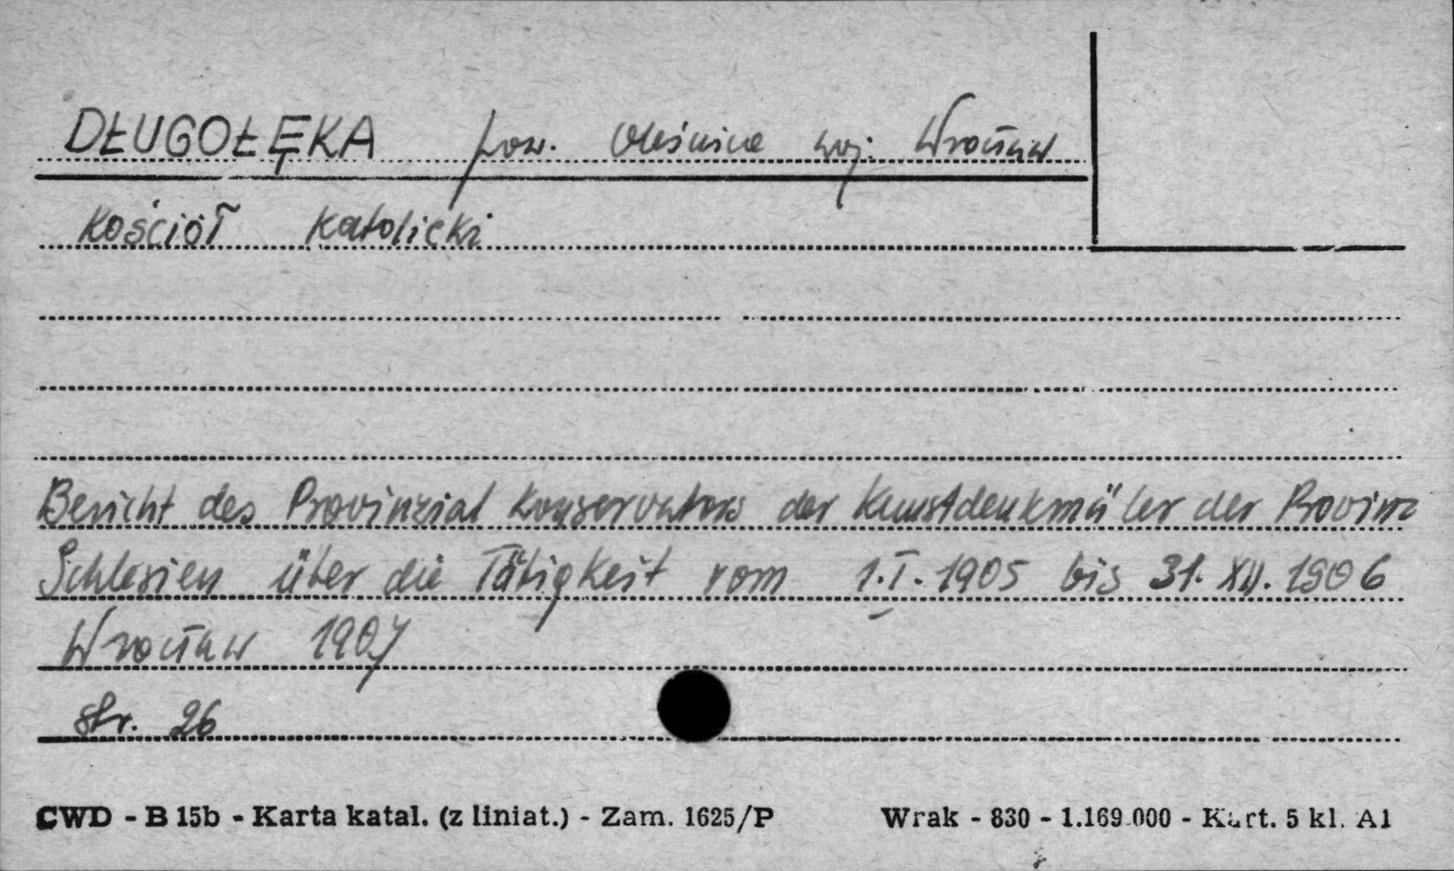 DŁUGOŁĘKA pow. Oleśnica woj. Wrocław
Kościół Katolicki
Bericht des Provinzial Konservators der Kunstdenkmäler der Provinz
Schlesien über die Tätigkeit vom 1.I.1905 bis 31.XII.1906
Wrocław 1907
str. 26
CWD - B 15b - Karta katal. (z liniat.) - Zam. 1625/P Wrak - 830 - 1.169.000 - Kart. 5 kl. A1